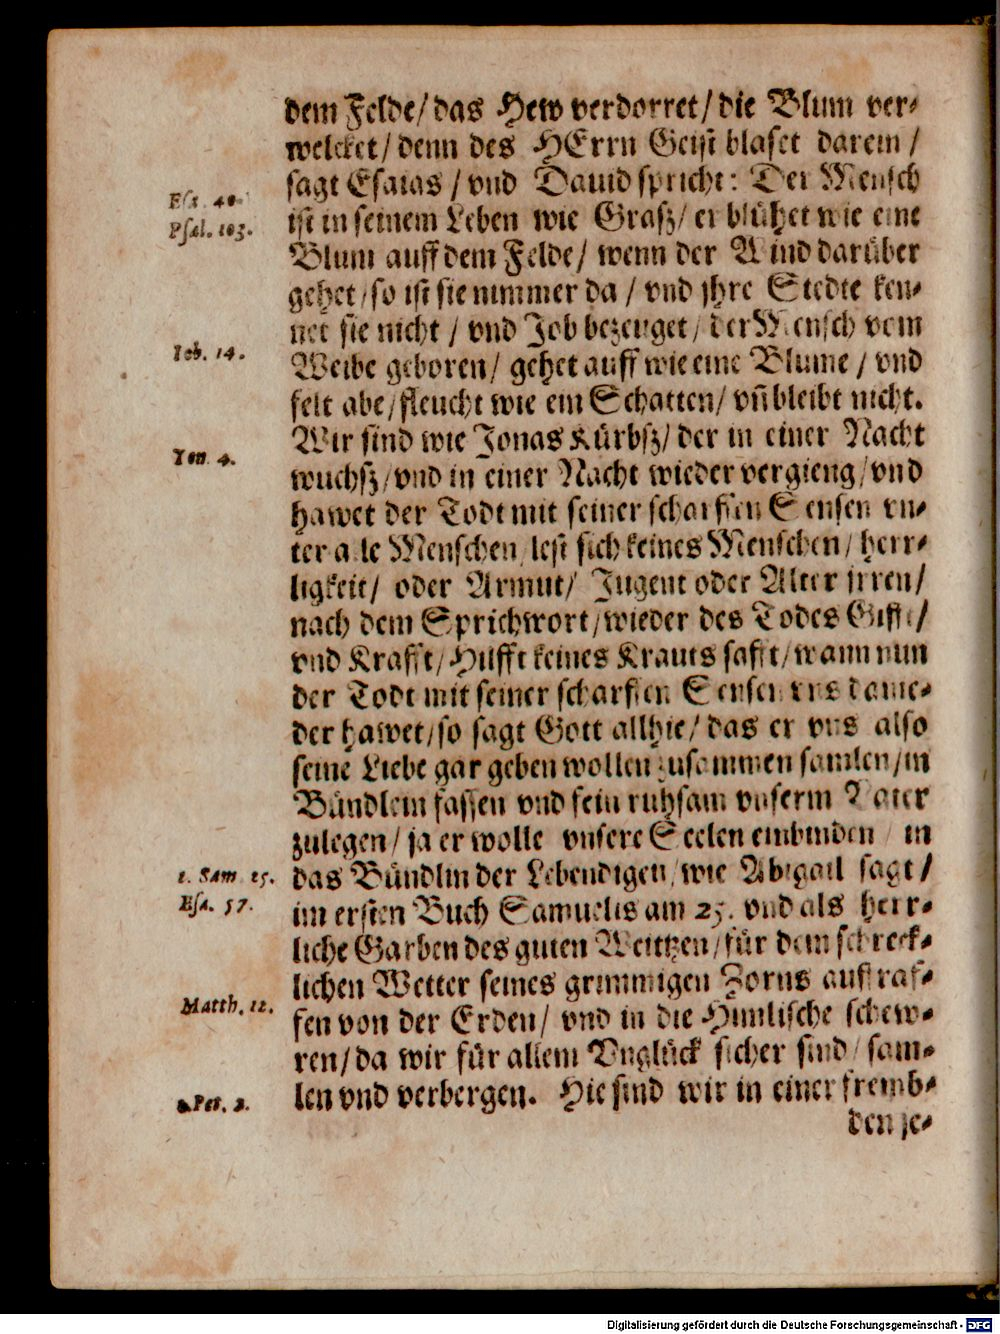 dem Felde/ das Hew verdorret/ die Blum ver-
welcket/ denn des HErrn Geist blaset darein /
sagt Esaias / vnd Dauid spricht: Der Mensch
Esa. 40.
ist in seinem Leben wie Grasz/ er blühet wie eine
Psal. 103.
Blum auff dem Felde/ wenn der Wind darüber
gehet/ so ist sie nimmer da / vnd jhre Stedte ken-
net sie nicht / vnd Job bezeuget/ der Mensch vom
Job. 14.
Weibe geboren/ gehet auff wie eine Blume / vnd
felt abe/ fleucht wie ein Schatten/ vñ bleibt nicht.
Wir sind wie Jonas Kürbsz/ der in einer Nacht
Jon. 4.
wuchsz/ vnd in einer Nacht wieder vergieng/ vnd
hawet der Todt mit seiner scharffen Sensen vn-
ter alle Menschen/ lest sich keines Menschen/ herr-
ligkeit/ oder Armut/ Jugent oder Alter jrren/
nach dem Sprichwort/ wieder des Todes Gifft/
vnd Krafft/ Hilfft keines Krauts safft/ wann nun
der Todt mit seiner scharffen Sensen vns darnie-
der hawet/ so sagt Gott allhie/ das er vns also
seine Liebe gar geben wollen zusammen samlen/ in
Bündlein fassen vnd fein ruhsam vnserm Vater
zulegen/ ja er wolle vnsere Seelen einbinden / in
das Bündlin der Lebendigen/ wie Abigail sagt/
1. Sam. 25.
im ersten Buch Samuelis am 25. vnd als herr-
Esa. 57.
liche Garben des guten Weitzen/ für dem schreck-
lichen Wetter seines grimmigen Zorns auffraf-
fen von der Erden/ vnd in die Himlische schew-
Matth. 12.
ren/ da wir für allem Vnglück sicher sind/ sam-
len vnd verbergen. Hie sind wir in einer fremb-
Pet. 2.
den je-
Digitalisierung gefördert durch die Deutsche Forschungsgemeinschaft - DFG